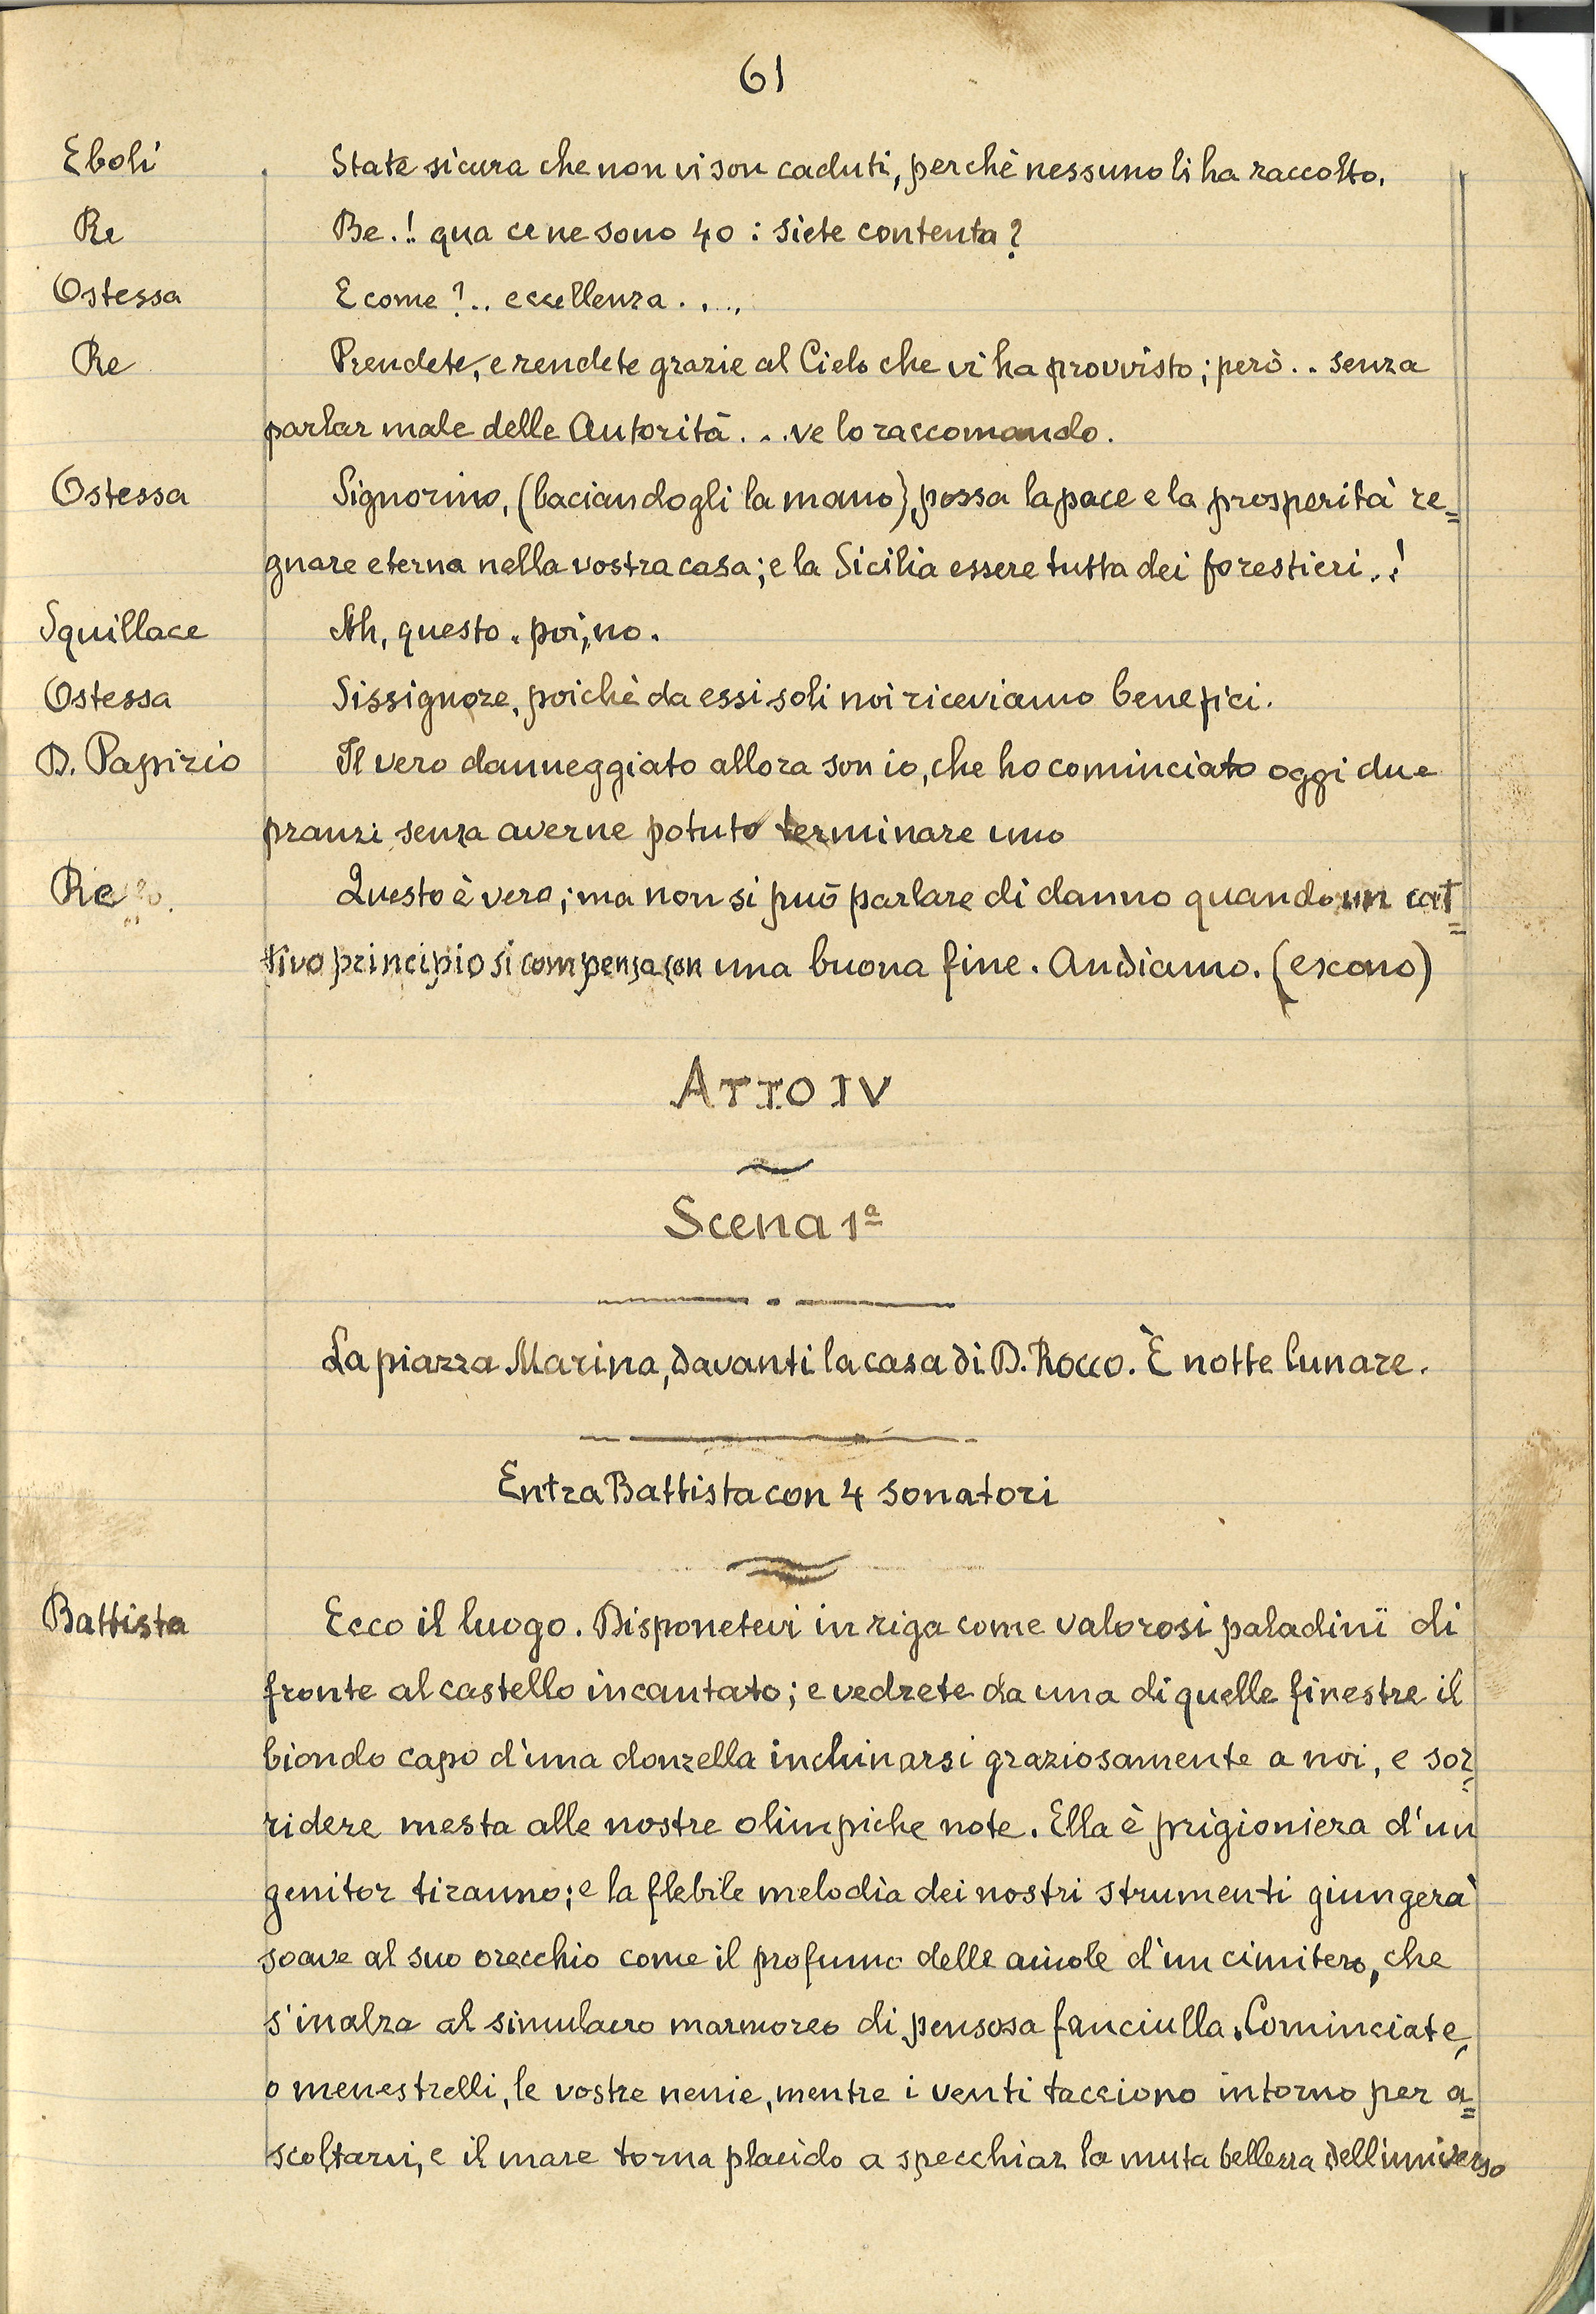 61
Eboli State sicura che non vi son caduti, perchè nessuno li ha raccolto.
Re Be.! qua ce ne sono 40: siete contenta?
Ostessa E come?.. eccellenza....
Re Prendete, e rendete grazie al Cielo che vi ha provvisto; però.. senza
parlar male delle Autorità... ve lo raccomando.
Ostessa Signorino, (baciandogli la mano), possa la pace e la prosperità re=
gnare eterna nella vostra casa; e la Sicilia essere tutta dei forestieri..!
Squillace Ah, questo. poi, no.
Ostessa Sissignore, poichè da essi soli noi riceviamo benefici.
D. Papirio Il vero danneggiato allora son io, che ho cominciato oggi due
pranzi senza averne potuto terminare uno
Re Questo è vero; ma non si può parlare di danno quando un cat=
tivo principio si compensa con una buona fine. Andiamo. (escono)
ATTO IV
Scena 1ª
La piazza Marina, davanti la casa di D. Rocco. È notte lunare.
Entra Battista con 4 sonatori
Battista Ecco il luogo. Disponetevi in riga come valorosi paladini di
fronte al castello incantato; e vedrete da una di quelle finestre il
biondo capo d'una donzella inchinarsi graziosamente a noi, e sor=
ridere mesta alle nostre olimpiche note. Ella è prigioniera d'un
genitor tiranno; e la flebile melodia dei nostri strumenti giungerà
soave al suo orecchio come il profumo delle aiuole d'un cimitero, che
s'inalza al simulacro marmoreo di pensosa fanciulla. Cominciate,
o menestrelli, le vostre nenie, mentre i venti tacciono intorno per a=
scoltarvi, e il mare torna placido a specchiar la muta bellezza dell'universo